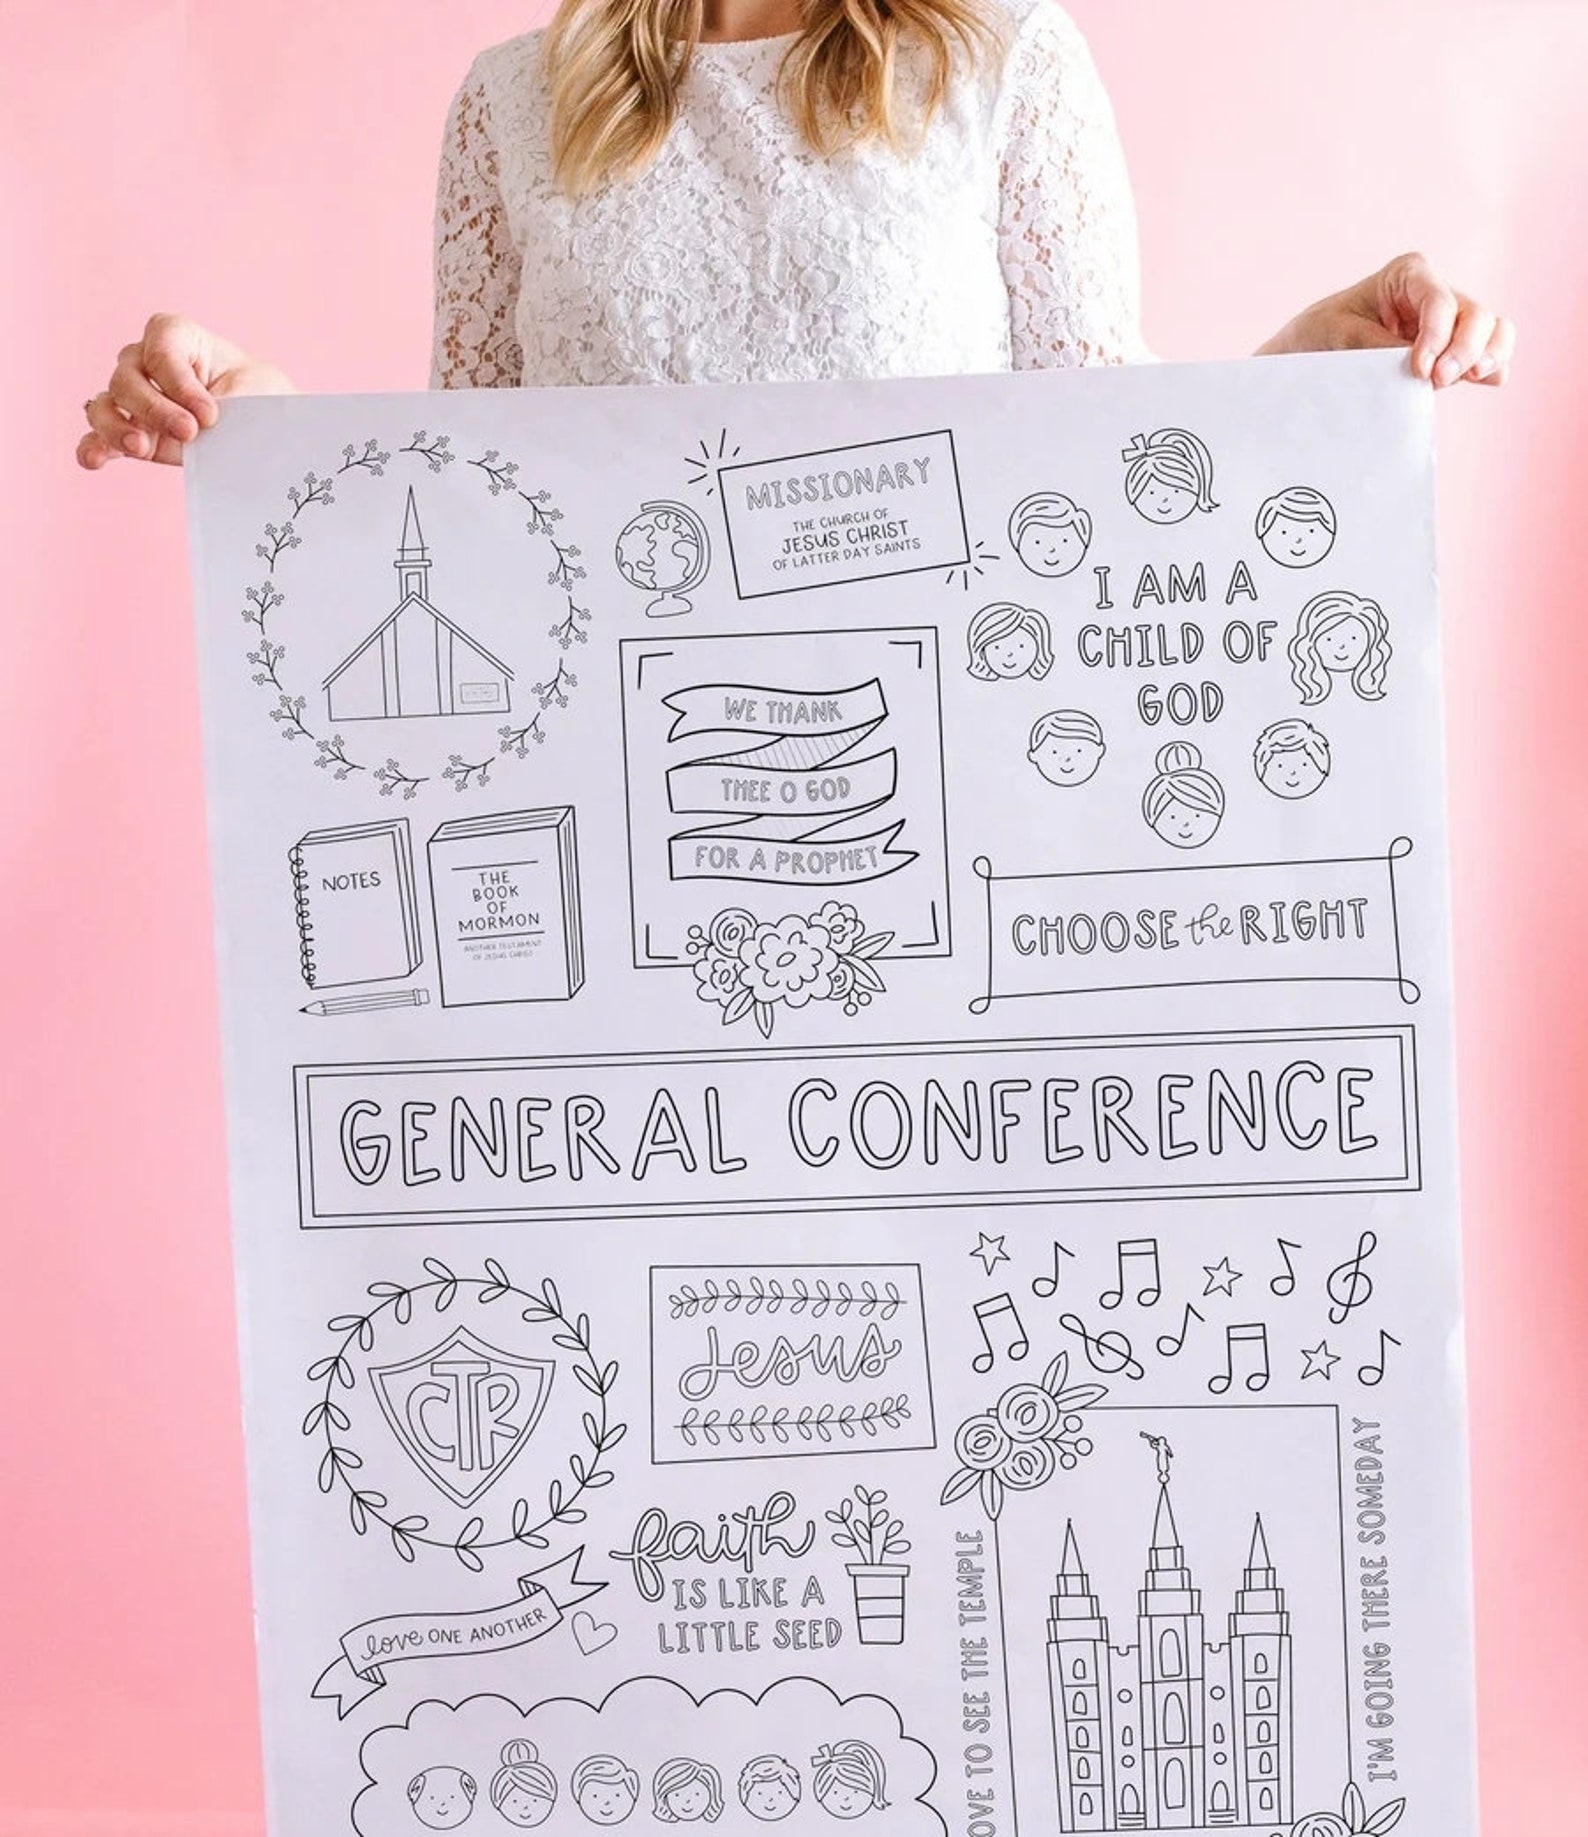 MISSIONARY
THE CHURCH OF
JESUS CHRIST
OF LATTER DAY SAINTS
I AM A
CHILD OF
GOD
WE THANK
THEE O GOD
FOR A PROPHET
NOTES
THE
BOOK
OF
MORMON
ANOTHER TESTAMENT
OF JESUS CHRIST
CHOOSE the RIGHT
GENERAL CONFERENCE
CTR
Jesus
faith
IS LIKE A
LITTLE SEED
love ONE ANOTHER
OVE TO SEE THE TEMPLE
I'M GOING THERE SOMEDAY